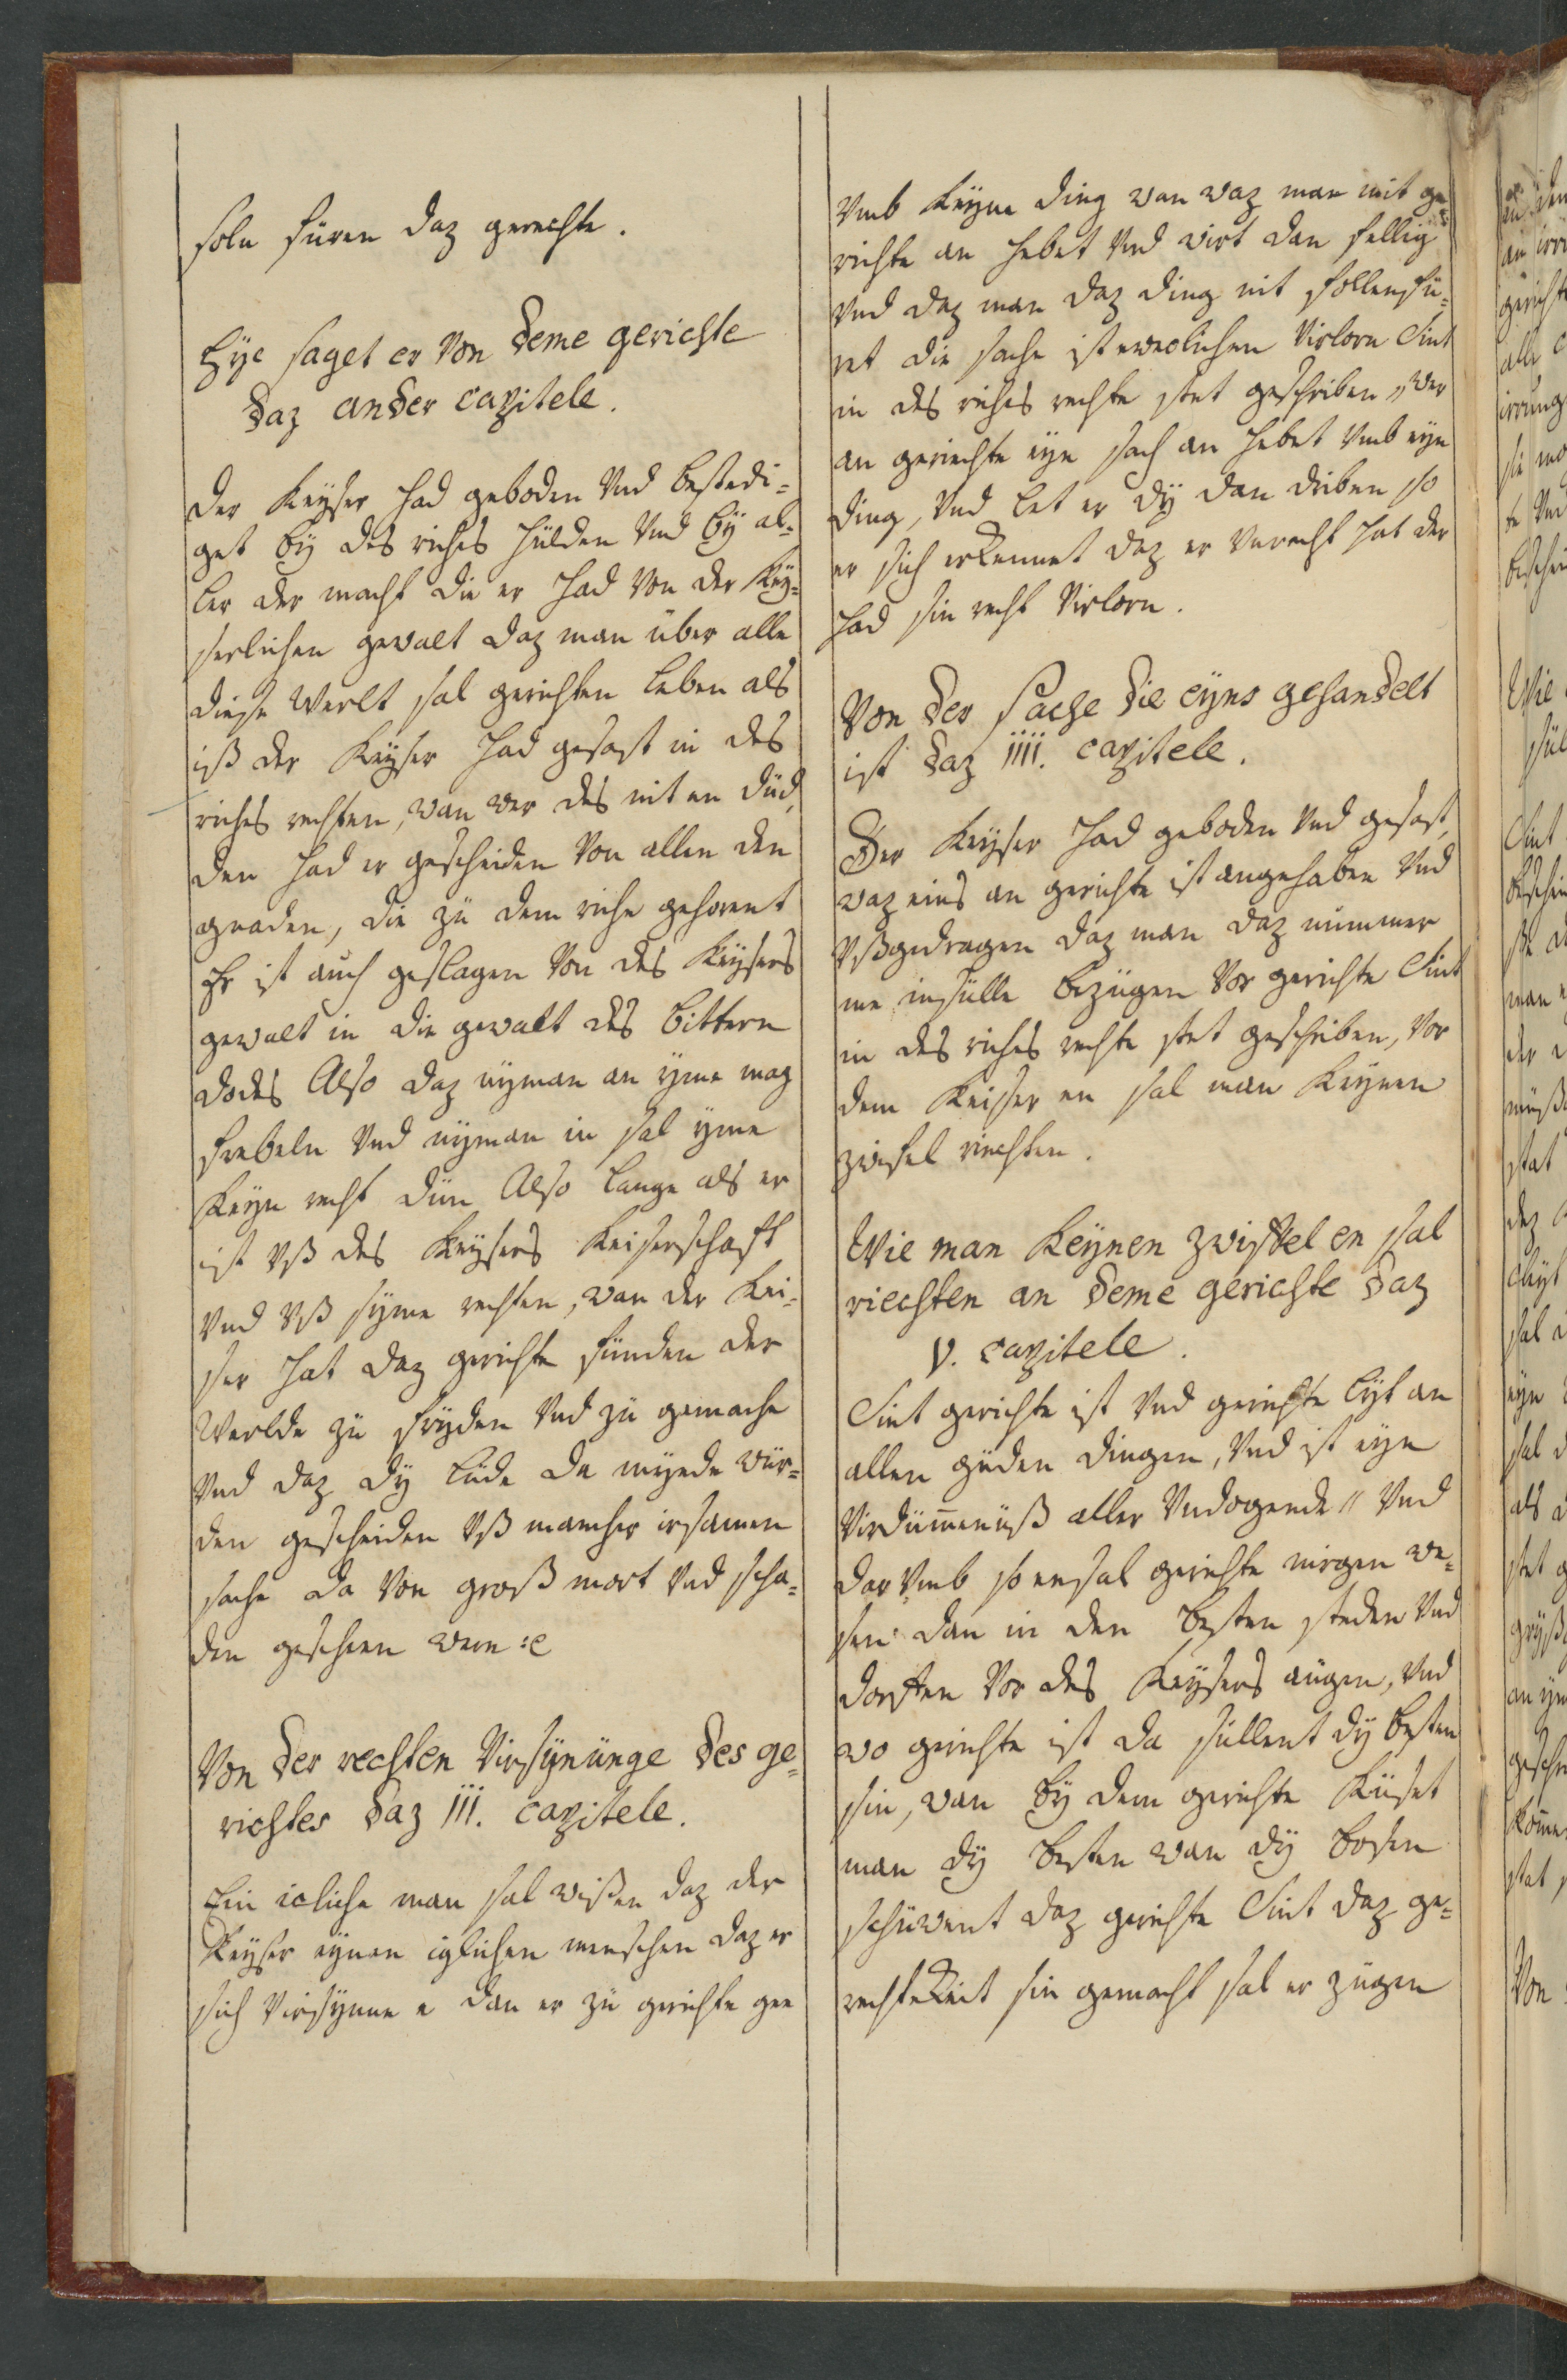 soln füren daz gerechte.
Hÿe saget er Von deme gerichte
daz ander capitele.
der Keÿser had geboden Vnd bestedi-
get bÿ des riches hülden Vnd bÿ al-
ler der macht die er had Von der Keÿ-
serlichen gewalt daz man über alle
diese Werlt sal gerichten leben als
iß der Keÿser had gesast in des
riches rechten, wan wer des nit en düd,
den had er gescheiden Von allen den
graden, die zü dem riche gehorent
Er ist auch geslagen Von des Keÿsers
gewalt in die gewalt des bittern
dodes Also daz nÿman an ÿme mag
frebeln Vnd nÿman in sal ÿme
keÿn recht dün Also lange als er
ist Vß des Keÿsers Keiserschaft
Vnd Vß sÿme rechten, wan der Kei-
ser hat daz gerichte fünden der
Werlde zü frÿden Vnd zü gemache
Vnd daz dÿ lüde da mÿede wür-
den gescheiden Vß mancher irsamen
sache da Von groß mort Vnd scha-
den gescheen were :e
Von der rechten Virsÿnünge des ge-
richtes daz III. capitele.
Ein icliche man sal wißen daz der
Keÿser eÿnen iglichen menschen daz er
sich Virsÿnne e dan er zü gerichte gee
Vmb keÿne ding wan waz man mit ge-
richte an hebet Vnd wirt dan fellig
Vnd daz man daz ding nit follenfü-
ret die sache ist eweclichen Virlorn Sint
in des riches rechte stet geschriben „ wer
an geriechte eÿn sach an hebet Vmb eÿn
ding, Vnd let er dÿ dan driben so
er sich erkennet daz er Vnrecht hat der
had sin recht Virlorn.
Von der sache die eÿns gehandelt
ist daz IIII. capitele.
Der Keÿser had geboden Vnd gesast,
waz eins an gerichte ist angehaben Vnd
Vßgedragen daz man daz nümmer
me insülle bezügen Vor gerichte Sint
in des riches rechte stet geschriben, Vor
dem Keisser en sal man keÿnen
zwifel riechten.
Wie man keÿnen zwiffel en sal
riechten an deme gerichte daz
V. capitele.
Sint gerichte ist Vnd gerichte lÿt an
allen güden dingen, Vnd ist eÿn
Virdümenüß aller Vndogende „ Vnd
dar Vmb so ensal gerichte nirgen we-
sen dan in den besten steden Vnd
dorffen Vor des Keÿsers augen, Vnd
wo gerichte ist da süllent dÿ besten
sin, wan bÿ dem gerichte küset
man dÿ besten wan dÿ bosen
schüwent daz gerichte Sint daz ge-
rechtekeit sin gemacht sal er zügen